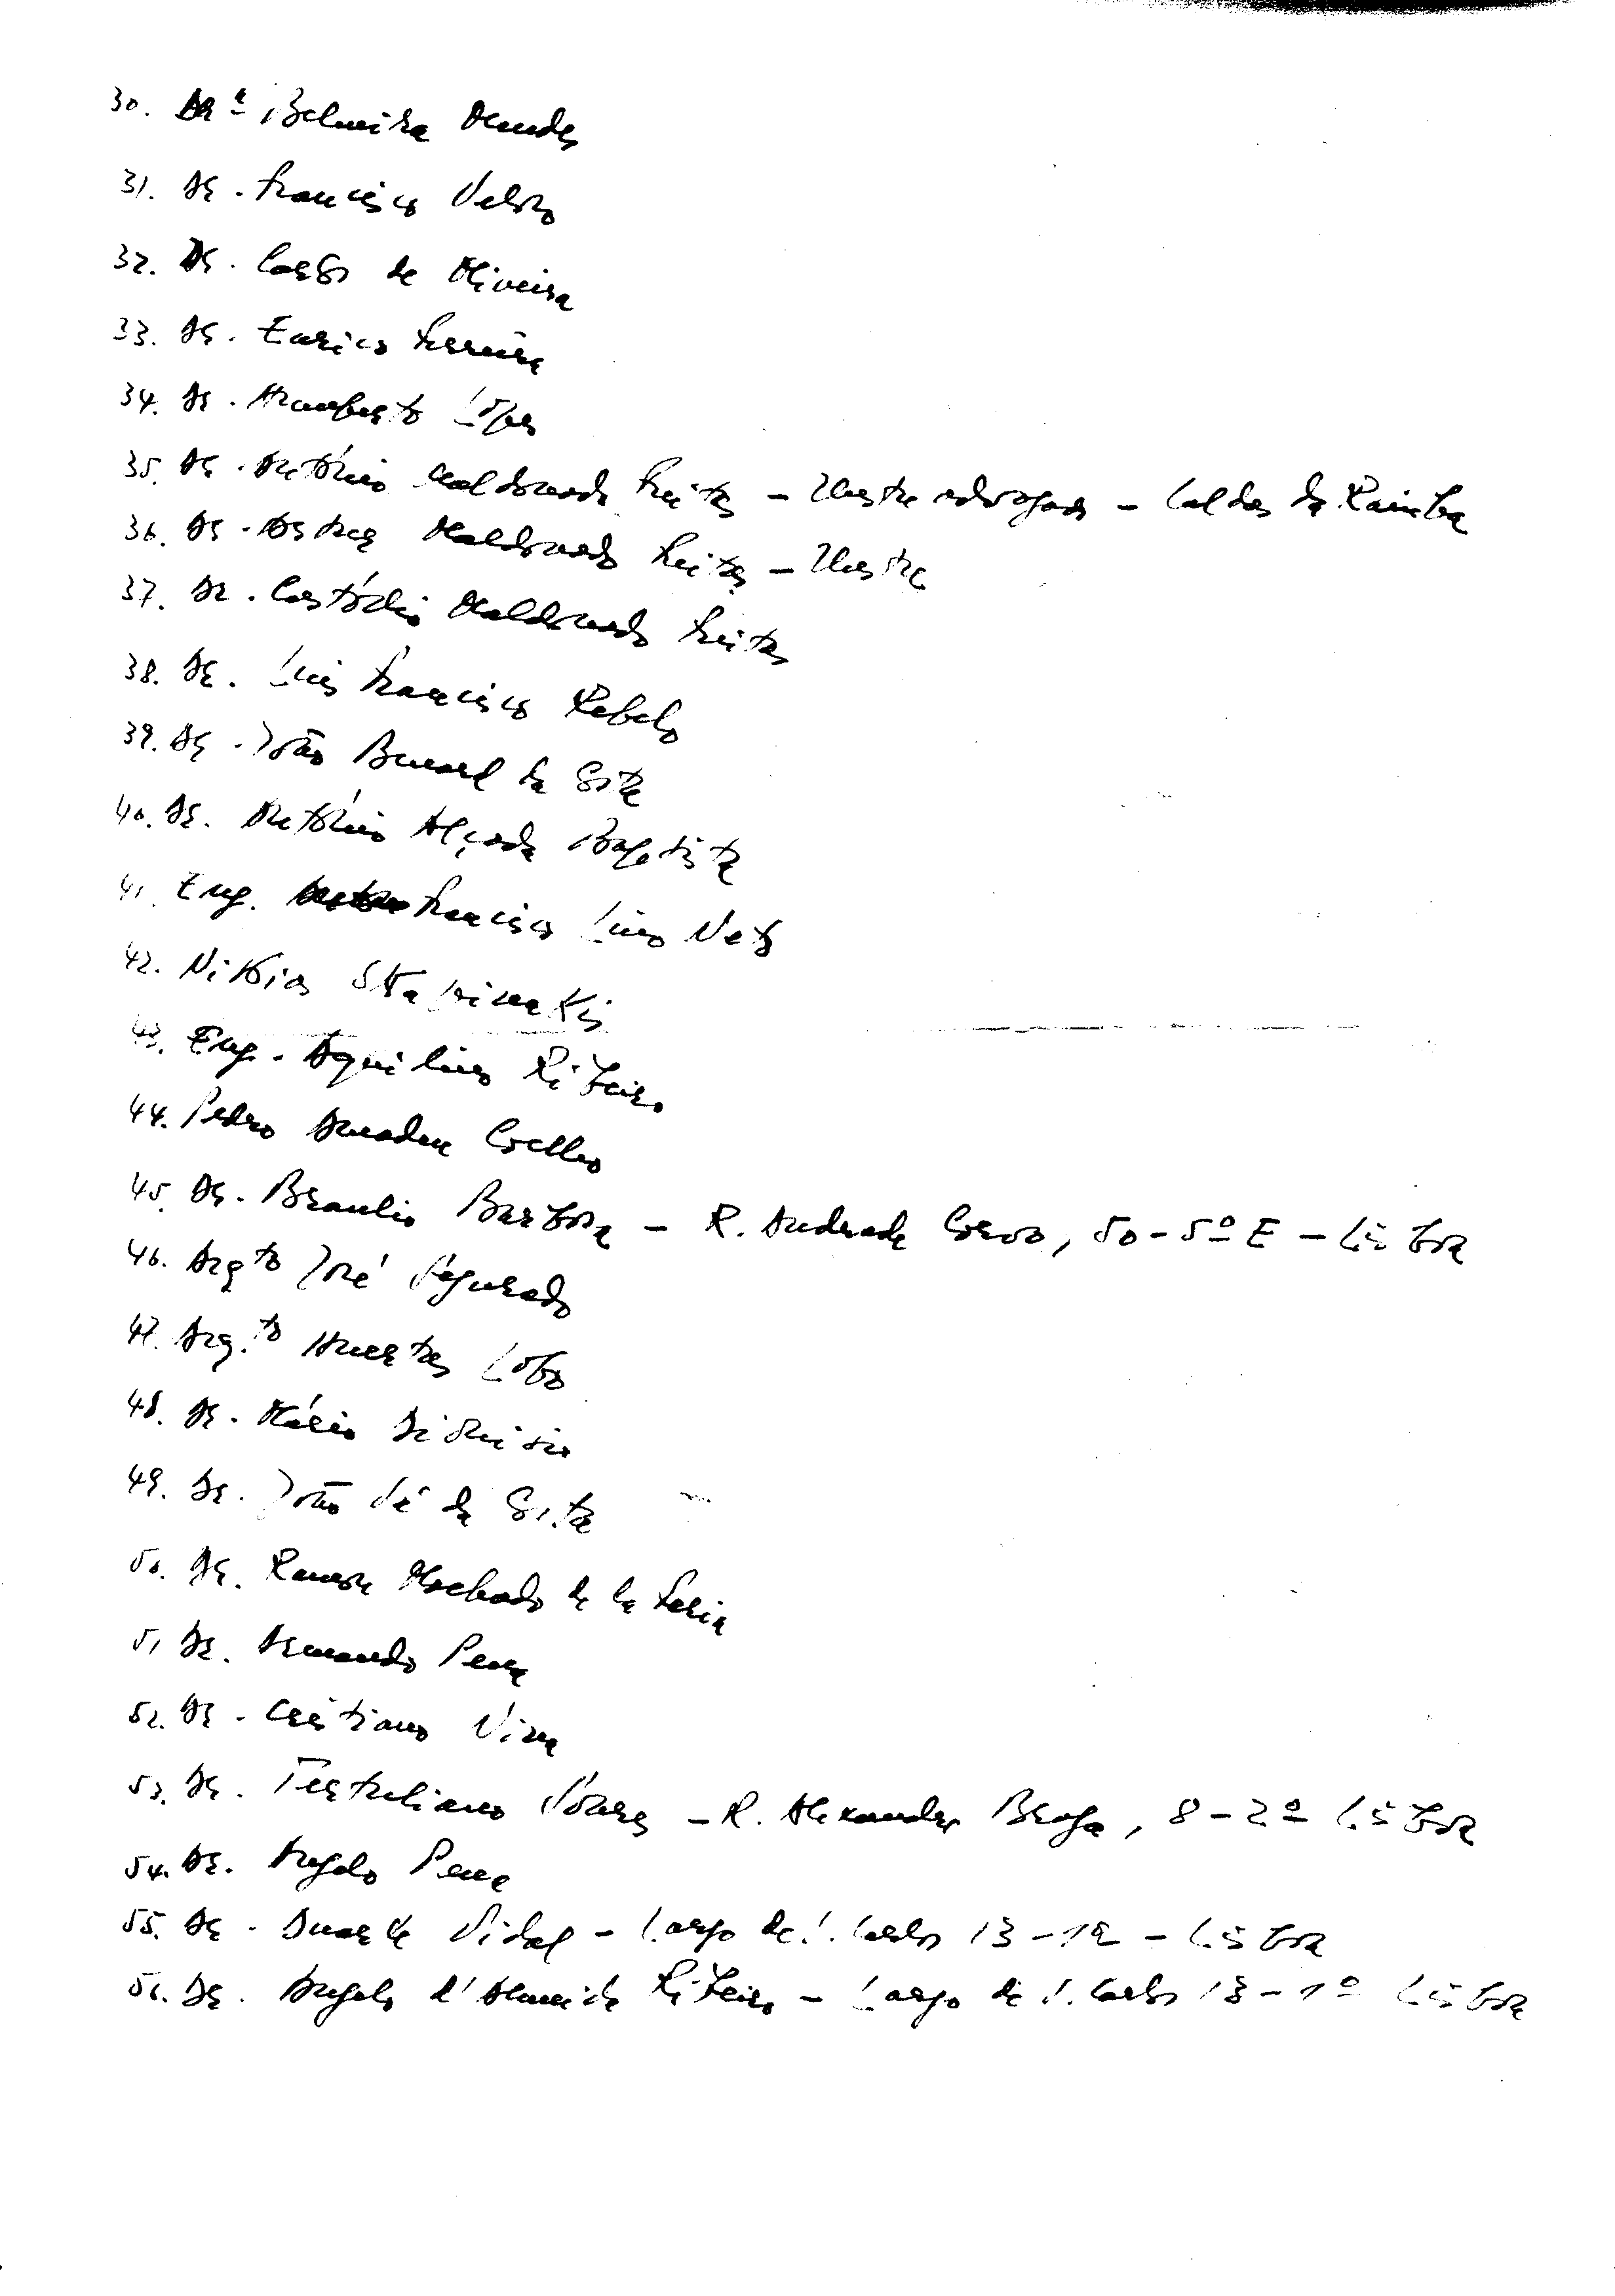 30. Drª Belmira Mendes
31. Dr. Francisco Veloso
32. Dr. Carlos de Oliveira
33. Dr. Eurico Ferreira
34. Dr. Humberto Lopes
35. Dr. António Maldonado Freitas - Ilustre advogado - Caldas da Rainha
36. Dr. Maldonado Freitas - Ilustre
37. Dr. Custódio Maldonado Freitas
38. Dr. Luis Francisco Rebelo
39. Dr. João Benard da Costa
40. Dr. António Alçada Baptista
41. Eng. Francisco Lino Neto
42. Nikias Skapinakis
43. Eng. Aquilino Ribeiro
44. Pedro Amadeu Coelho
45. Dr. Braulio Barbosa - R. Andrade Corvo, 50-5º E - Lisboa
46. Arqto José Segurado
47. Arq.to Huertas Lobo
48. Dr. Mário Dionisio
49. Dr. João Sá da Costa
50. Dr. Ramon Machado de la Feria
51 Dr. Armando Pena
52. Dr. Cristiano Nina
53. Dr. Tertuliano Soares - R. Alexandre Braga, 8-2º Lisboa
54. Dr. Angelo Pena
55. Dr. Duarte Vidal - Largo de S. Carlos 13-1º - Lisboa
56. Dr. Angelo d'Almeida Ribeiro - Largo de S. Carlos 13-1º Lisboa